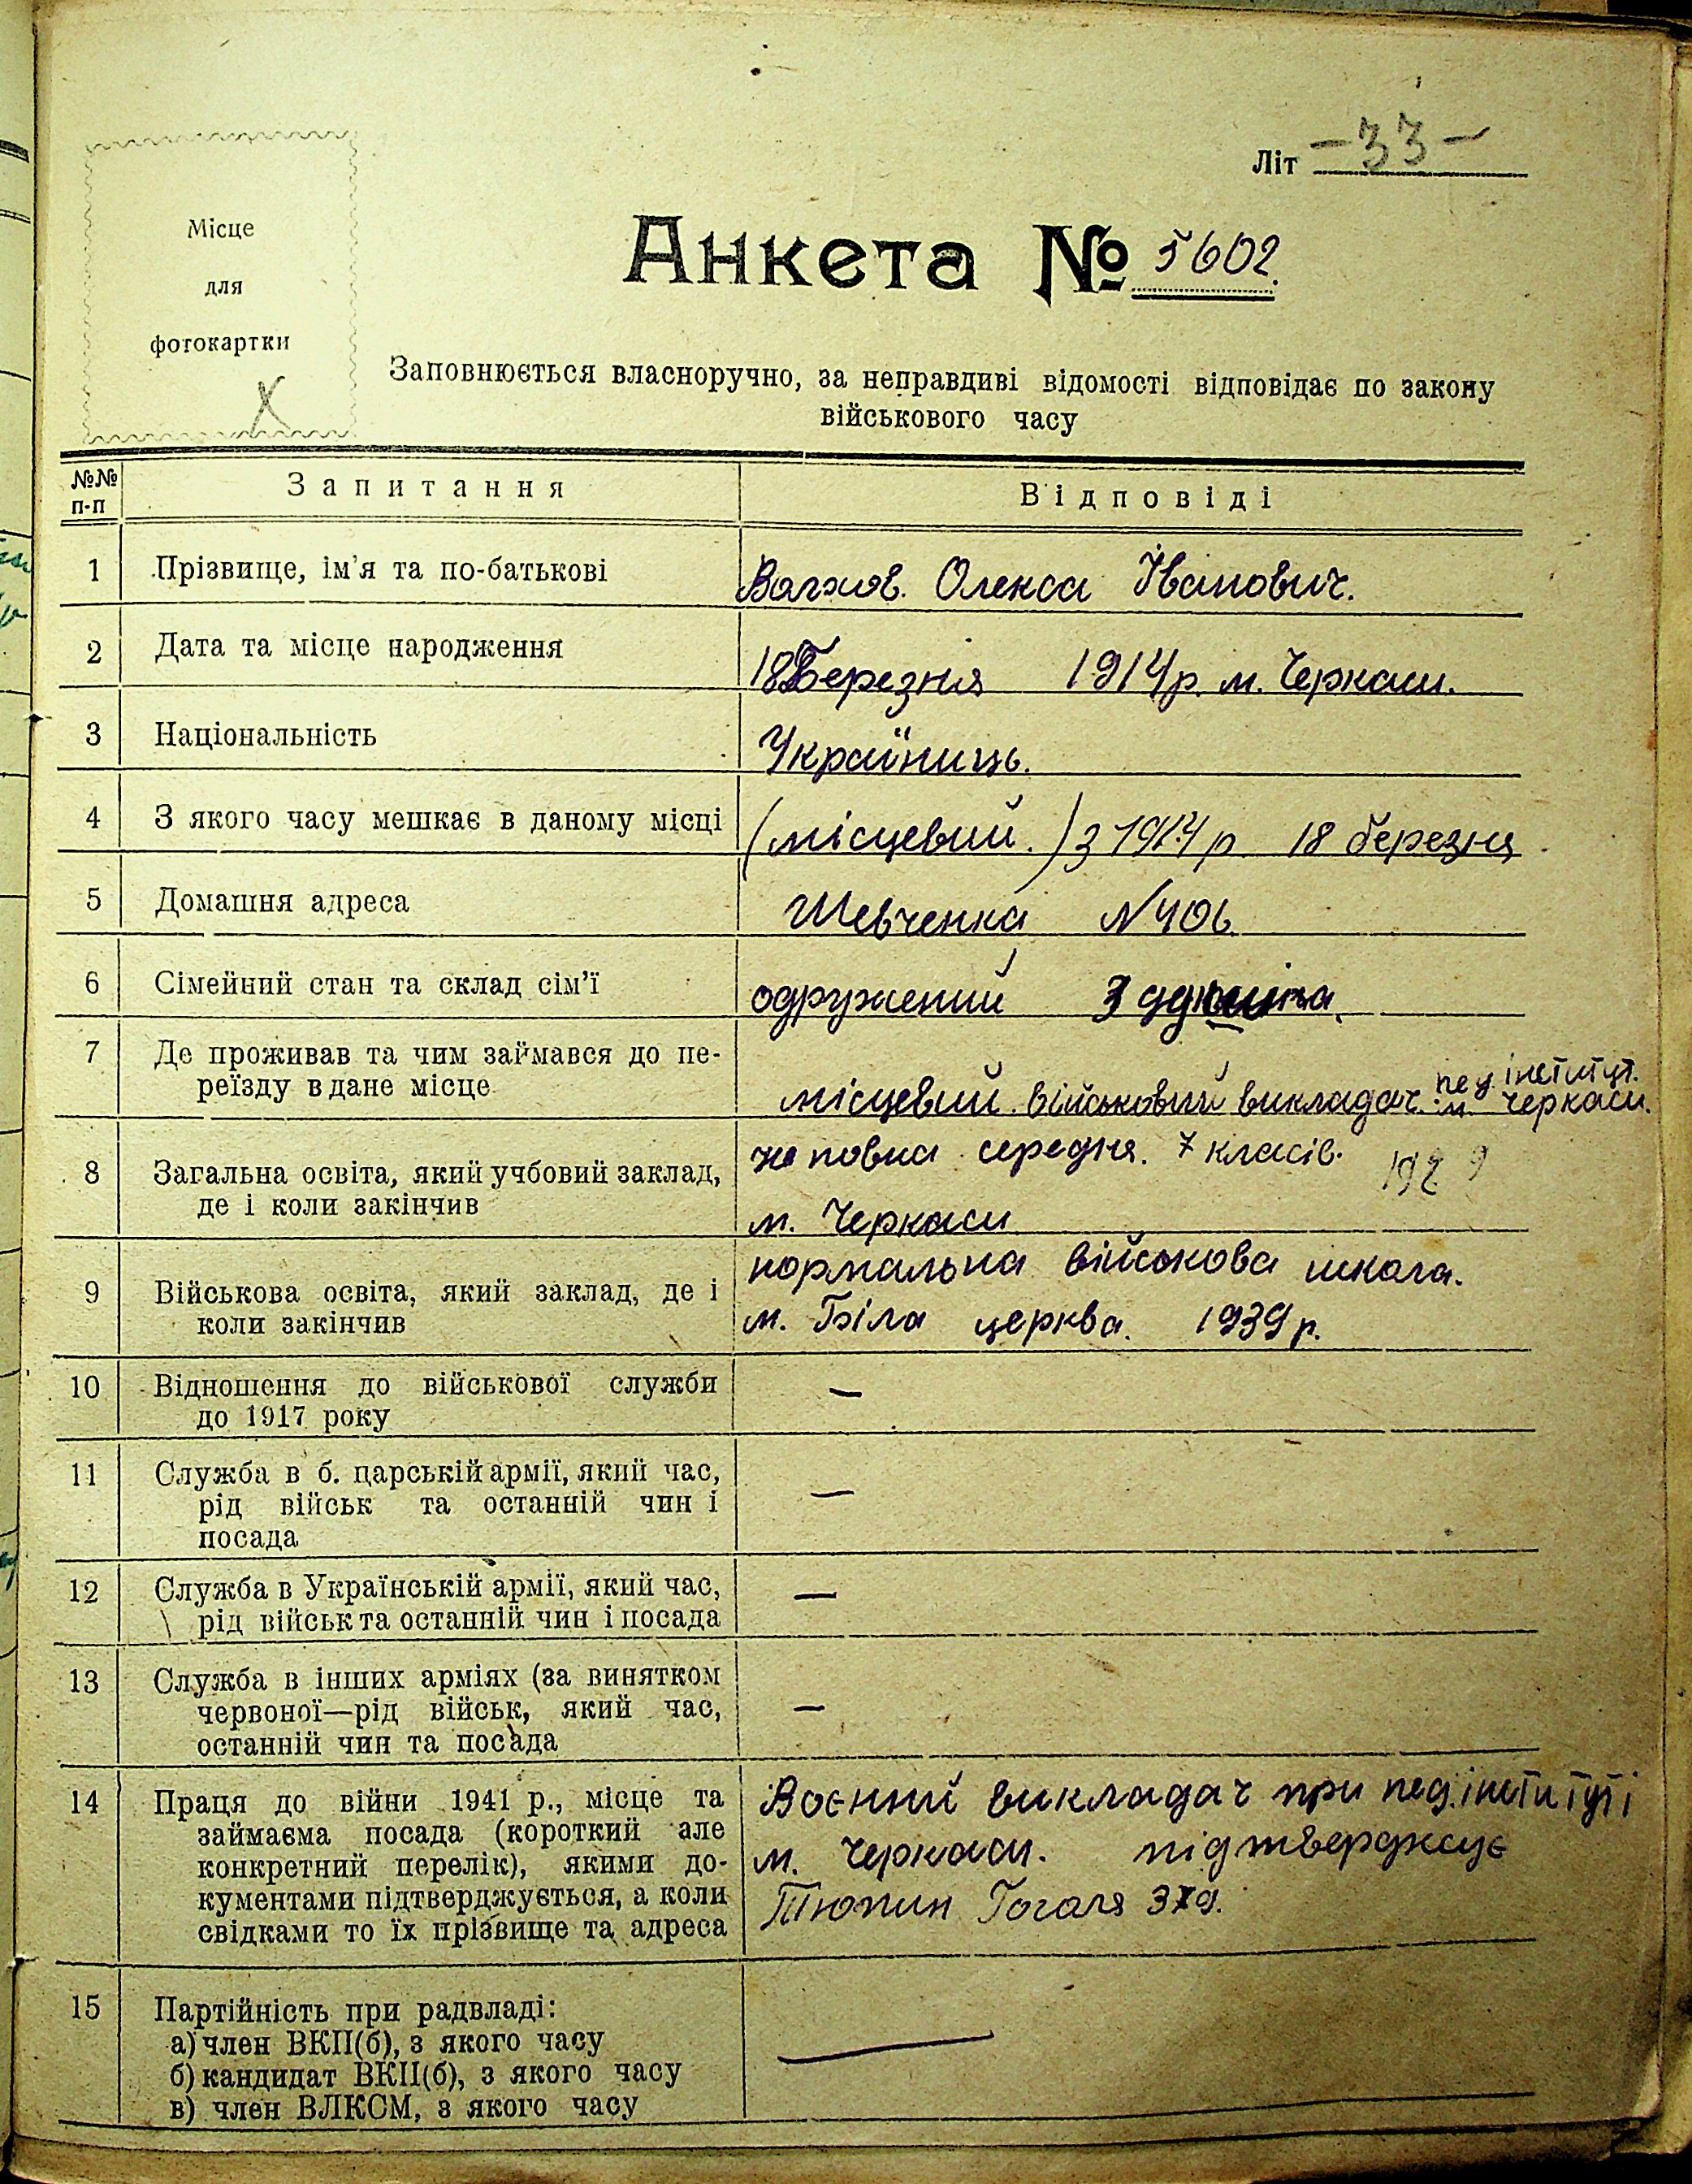 Літ -33-
Місце
для
фотокартки
Х
Анкета № 5602.
Заповнюється власноручно, за неправдиві відомості відповідає по закону
військового часу
№№
п-п
Запитання
Відповіді
1 Прізвище, ім'я та по-батькові
Олекса Іванович.
2 Дата та місце народження
18 Березня 1914 р. м. Черкаси.
3 Національність
Україниць.
4 З якого часу мешкає в даному місці
(місцевий.) з 1914 р 18 березня
5 Домашня адреса
Шевченка N 406
6 Сімейний стан та склад сім'ї
одружений 3
7 Де проживав та чим займався до пе-
реїзду в дане місце
місцевий. військовий викладач. пед. інститут.
м. Черкаси.
8 Загальна освіта, який учбовий заклад,
де і коли закінчив
не повна середня. 7 класів. 1929
м. Черкаси
9 Військова освіта, який заклад, де і
коли закінчив
нормальна військова школа.
м. Біла церква. 1939 р.
10 Відношення до військової служби
до 1917 року
—
11 Служба в б. царській армії, який час,
рід військ та останній чин і
посада
—
12 Служба в Українській армії, який час,
рід військ та останній чин і посада
—
13 Служба в інших арміях (за винятком
червоної—рід військ, який час,
останній чин та посада
—
14 Праця до війни 1941 р., місце та
займаєма посада (короткий але
конкретний перелік), якими до-
кументами підтверджується, а коли
свідками то їх прізвище та адреса
Воєнний викладач при пед. інституті
м. Черкаси. підтверджує
Тюпин Гоголя
15 Партійність при радвладі:
а) член ВКП(б), з якого часу
б) кандидат ВКП(б), з якого часу
в) член ВЛКСМ, з якого часу
—